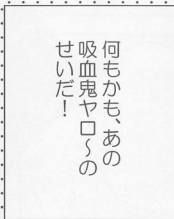 何もかも、あの
吸血鬼ヤロ～の
せいだ！